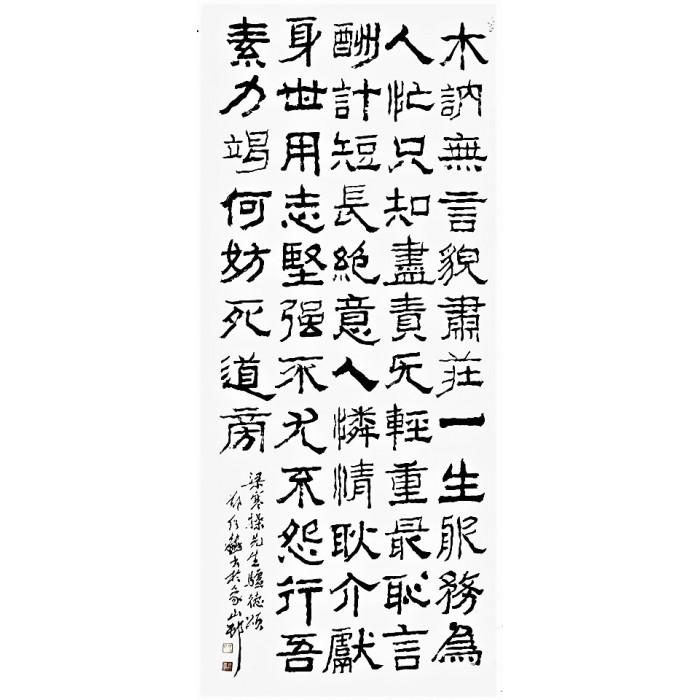 木訥無言貌肅莊一生服務為
人忙只知盡責无輕重最恥言
酬計短長絕意人憐情耿介獻
身世用志堅强不尤不怨行吾
素力竭何妨死道旁
梁寒操先生驢德頌
書於象山邨